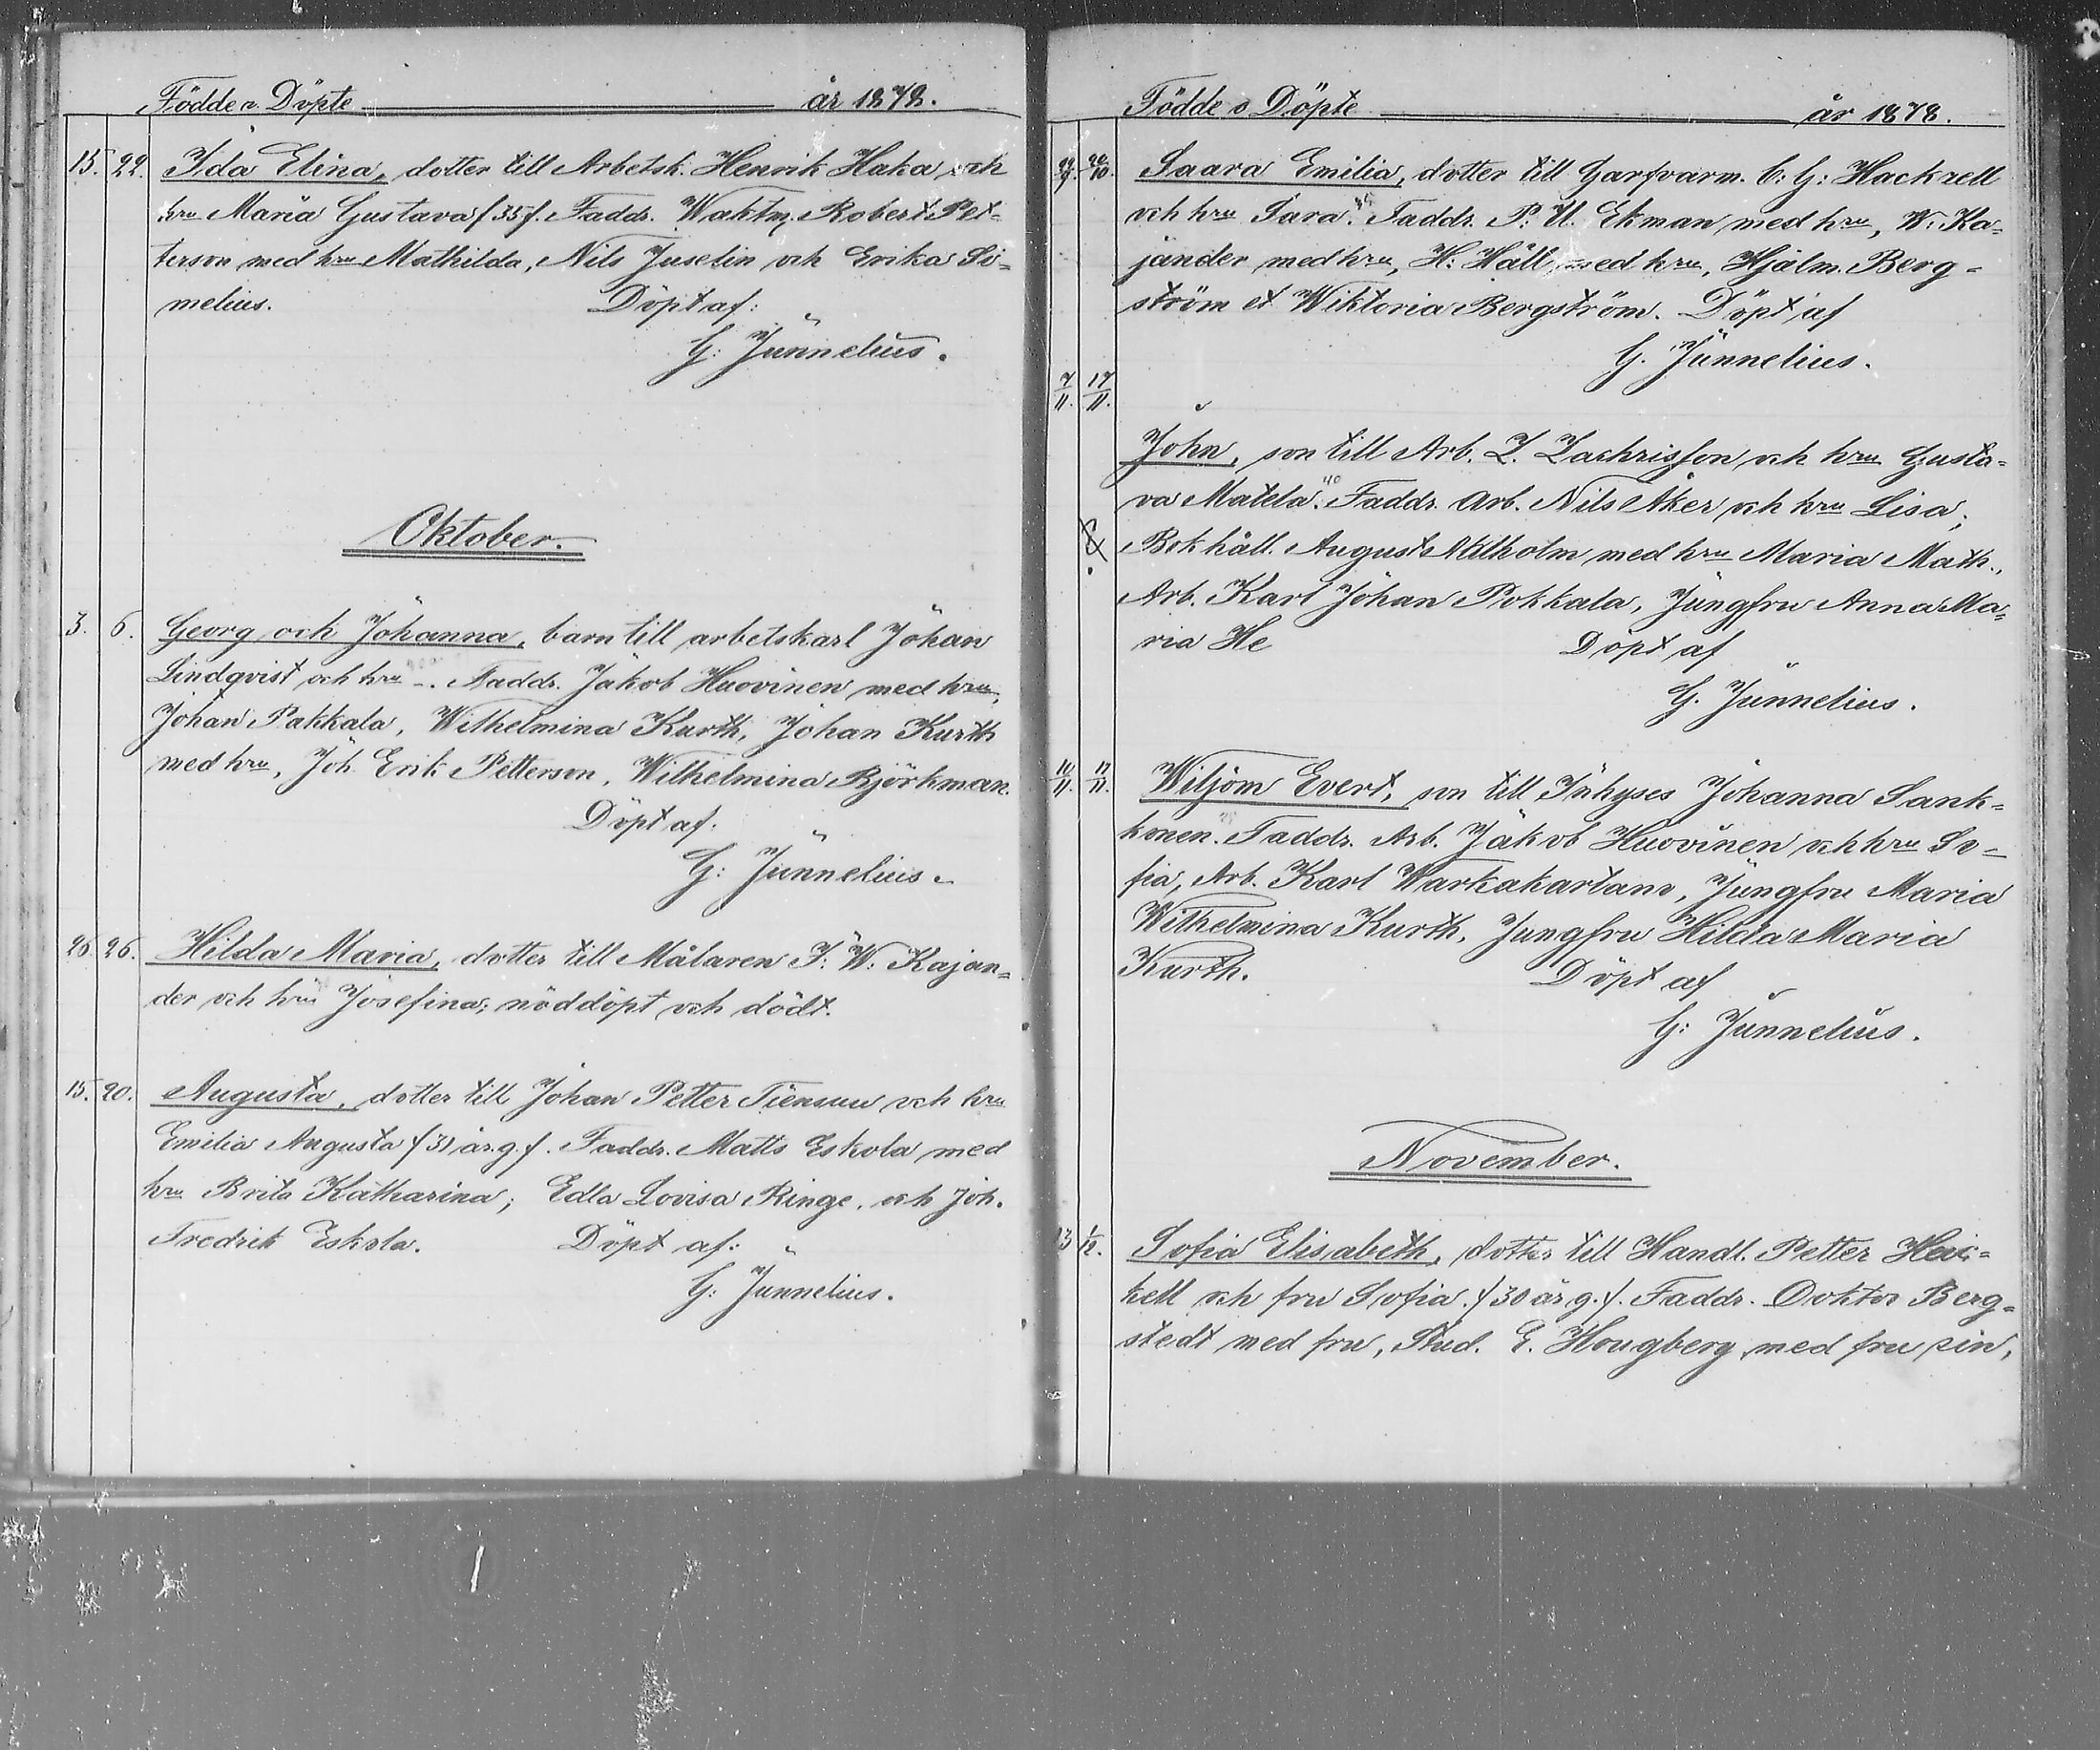 Födde o. Döpte år 1878.
15. 22. Ida Elina, dotter till Arbetsk. Henrik Haka och
hru Maria Gustava /35/. Faddr. Waktm. Robert Pet-
terson med hru Mathilda, Nils Juselin och Erika Si-
melius. Döpt af:
G: Junnelius.
Oktober.
3. 6. Georg och Johanna, barn till arbetskarl Johan
Lindqvist och hru –. Faddr. Jakob Huovinen med hru,
Johan Pakkala, Wilhelmina Kurth, Johan Kurth
med hru, Joh. Erik Petterson, Wilhelmina Björkman.
Döpt af.
G: Junnelius.
26. 26. Hilda Maria, dotter till Målaren F: W: Kajan-
der och hru Josefina; nöddöpt och dödt.
15. 20. Augusta, dotter till Johan Petter Tiensuu och hru
Emilia Augusta /31 år.g./. Faddr. Matts Eskola med
hru Brita Katharina; Edla Lovisa Ringe, och Joh.
Fredrik Eskola. Döpt af:
G: Junnelius.
Födde o Döpte år 1878.
20/10. Saara Emilia, dotter till Garfvarm. C: G: Hackzell
och hru Sara. Faddr. P: U. Ekman med hru, W. Ka-
jander med hru, H: Häll med hru, Hjalm. Berg-
ström et Wiktoria Bergström. Döpt af
G. Junnelius.
7/11. 17/11.
John, son till Arb. Z. Zachrisson och hru Gusta-
va Matela. 40 Faddr. Arb. Nils Åker och hru Lisa,
Bokhåll. August Ahlholm med hru Maria Math.,
Arb. Karl Johan Pokkala, Jungfru Anna Ma-
ria He Döpt af
G. Junnelius.
11/11. 17/11. Wiljom Evert, son till Inhyses Johanna Sank-
konen. Faddr. Arb. Jakob Huovinen och hru So-
fia, Arb. Karl Warkakartano, Jungfru Maria
Wilhelmina Kurth, Jungfru Hilda Maria
Kurth. Döpt af
G: Junnelius.
November.
13 1/12. Sofia Elisabeth, dotter till Handl. Petter Hei-
kell och fru Sofia. /30 år g./. Faddr. Doktor Berg-
stedt med fru, Stud. E. Hougberg med fru sin,